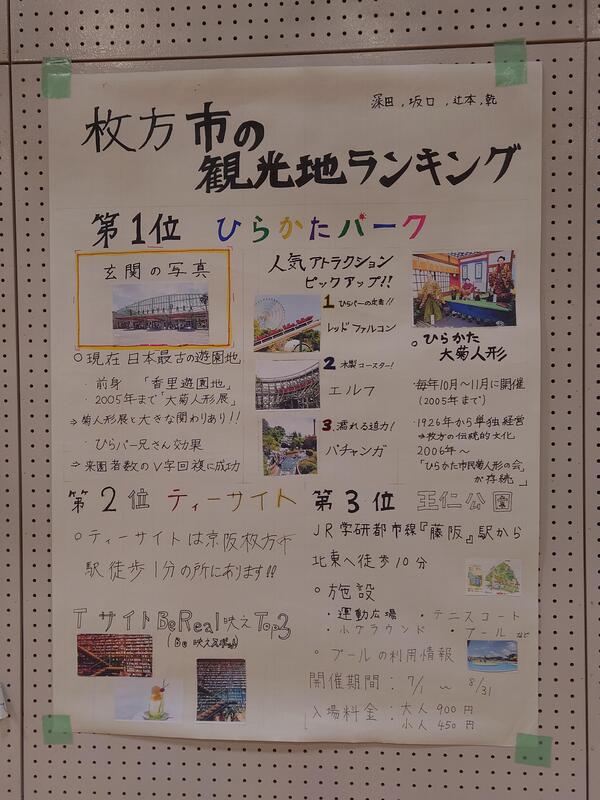 深田, 坂口, 辻本, 乾
枚方市の
観光地ランキング
第1位 ひらかたパーク
玄関の写真
○現在 日本最古の遊園地
・前身 「香里遊園地」
・2005年まで「大菊人形展」
⇒菊人形展と大きな関わりあり!!
・ひらパー兄さん効果
⇒来園者数のV字回複に成功
人気アトラクション
ピックアップ!!
1 ひらパーの定番!!
レッドファルコン
2 木製コースター!
エルフ
3.濡れる迫力!
バチャンガ
○ひらかた
大菊人形
・毎年10月~11月に開催
(2005年まで)
・1926年から単独経営
⇒枚方の伝統的文化
2006年~
「ひらかた市民菊人形の会」
が存続
第2位 ティーサイト
○ティーサイトは京阪枚方市
駅徒歩1分の所にあります!!
TサイトBeReal映えTop3
第3位 王仁公園
JR学研都市線『藤阪』駅から
北東へ徒歩10分
○施設
・運動広場 ・テニスコート
・小グラウンド ・プール など
○プールの利用情報
開催期間:7/1 ~ 8/31
入場料金:大人900円
小人 450円